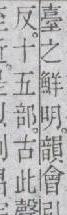 臺之鮮明韻會引
反。十五部。古此聲